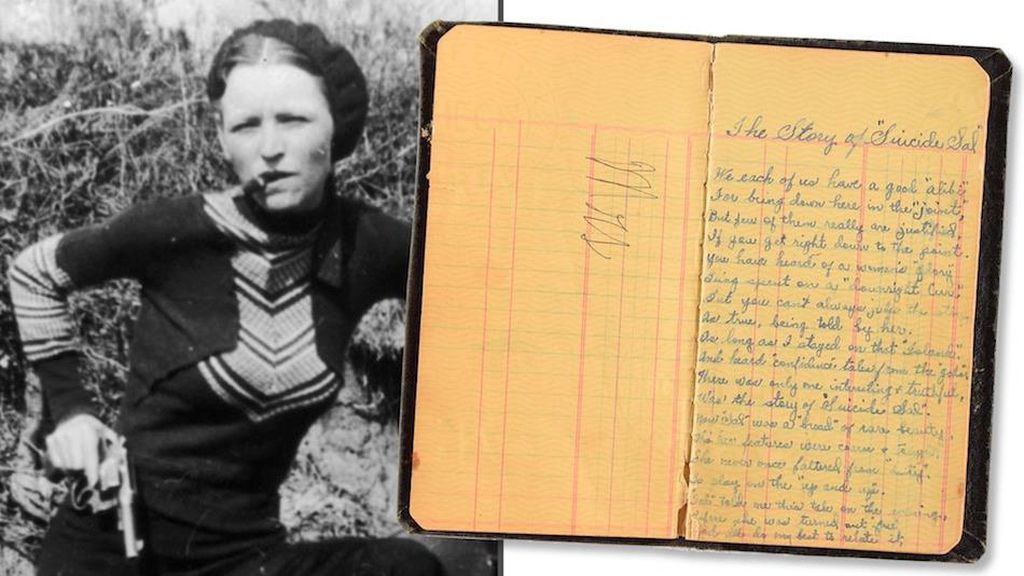 The Story of "Suicide Sal"
We each of us have a good "alibi"
For being down here in the "joint,"
But few of them really are justified,
If you get right down to the point.
You have heard of a woman's "glory"
Being spent on a "downright Cur,"
But you can't always judge the story
As true, being told by her.
As long as I stayed on that "Island"
And heard "confidence" tales from the "gals,"
There was only one interesting & truthful,
Was the story of "Suicide Sal".
Now "Sal" was a "broad" of rare beauty,
features were coarse & tough;
She never once faltered from "duty"
To play on the "up and up".
"Sal" told me this tale on the evening,
Before she was turned out "free"
do my best to relate it,